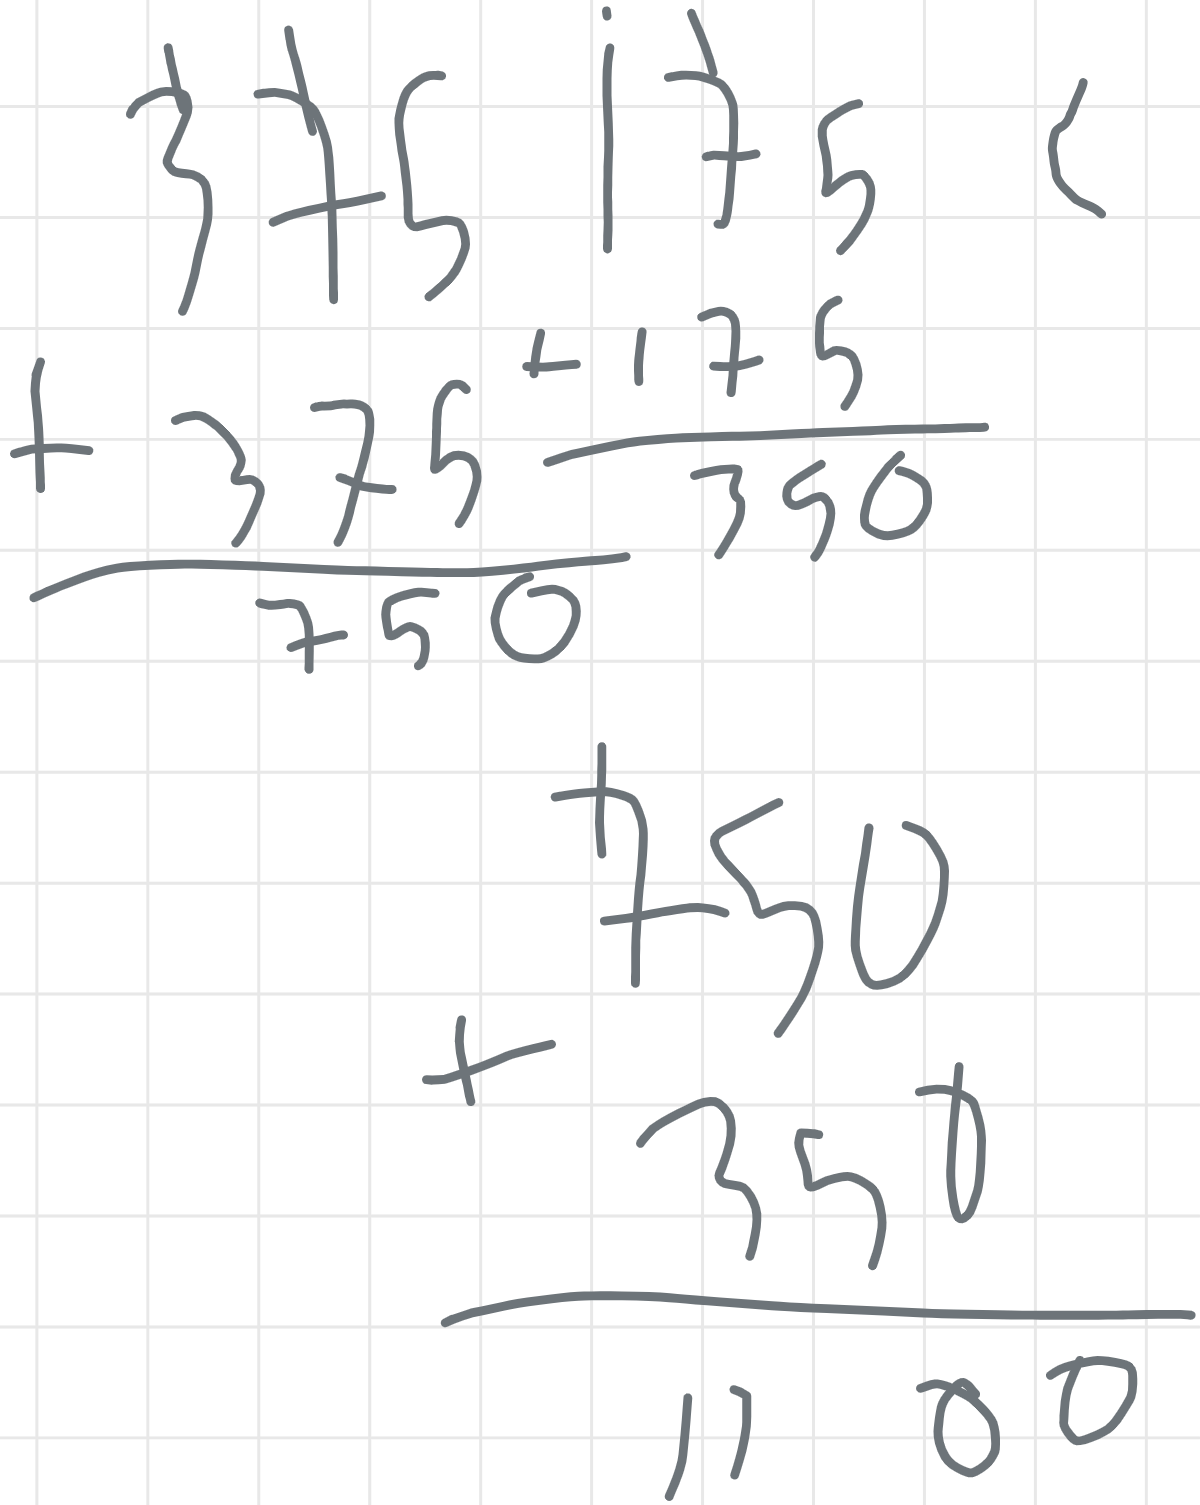 375 175 (
+ 375 + 175
750 350
750
+ 350
1100